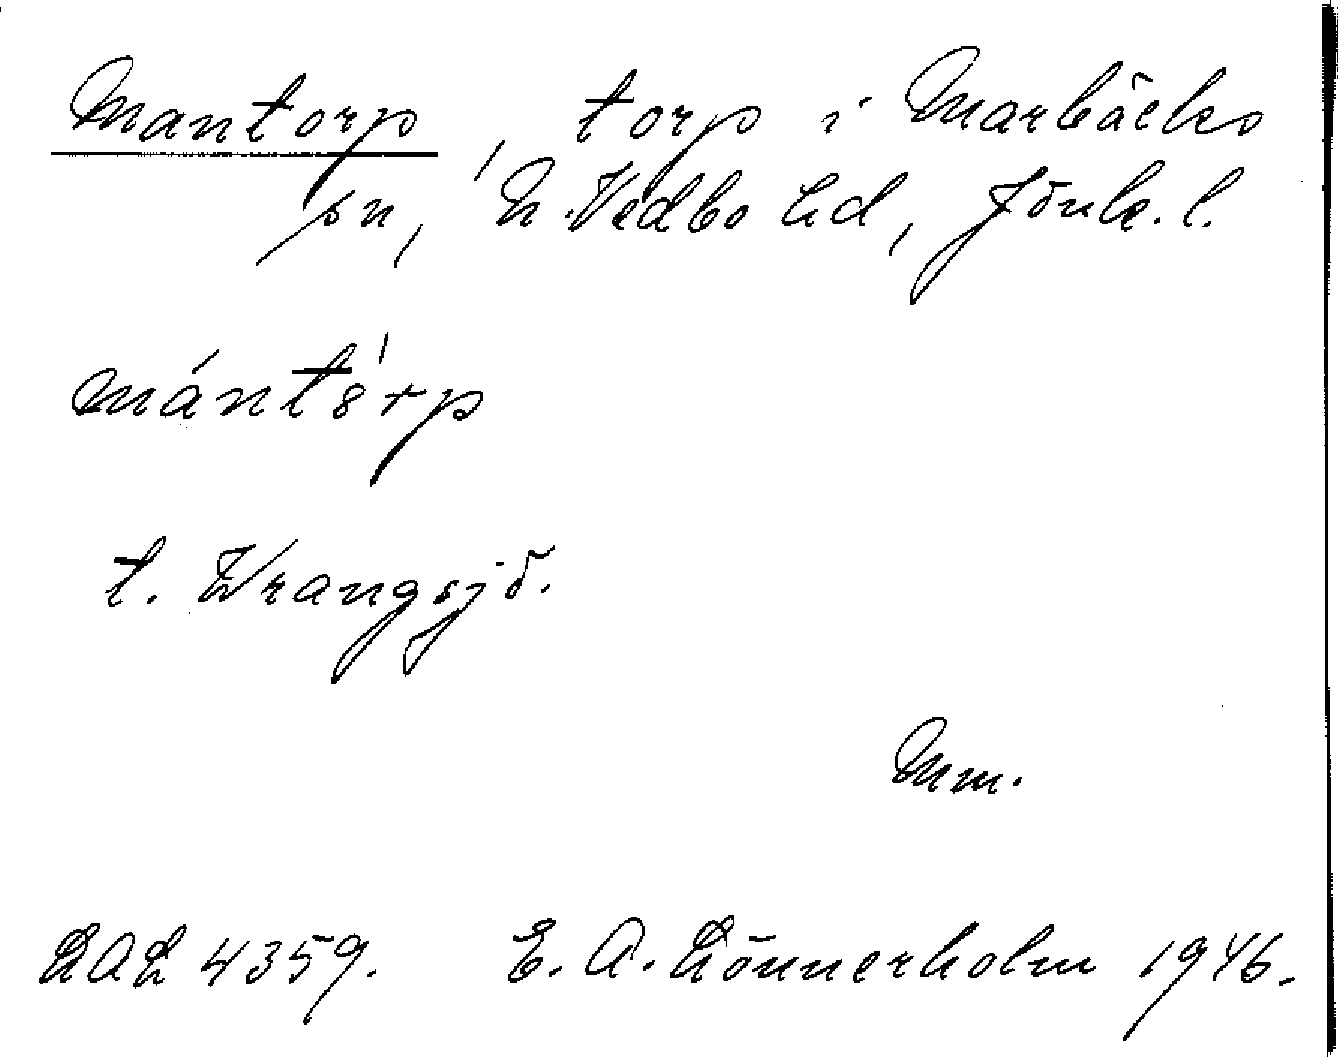 Mantorp, torp i Marbäcks
sn, N. Vedbo hd, Jönk. l.
mántȣ́rp
t. Wrangsjö.
Mm.
LAL 4359. E. A. Lönnerholm 1946.